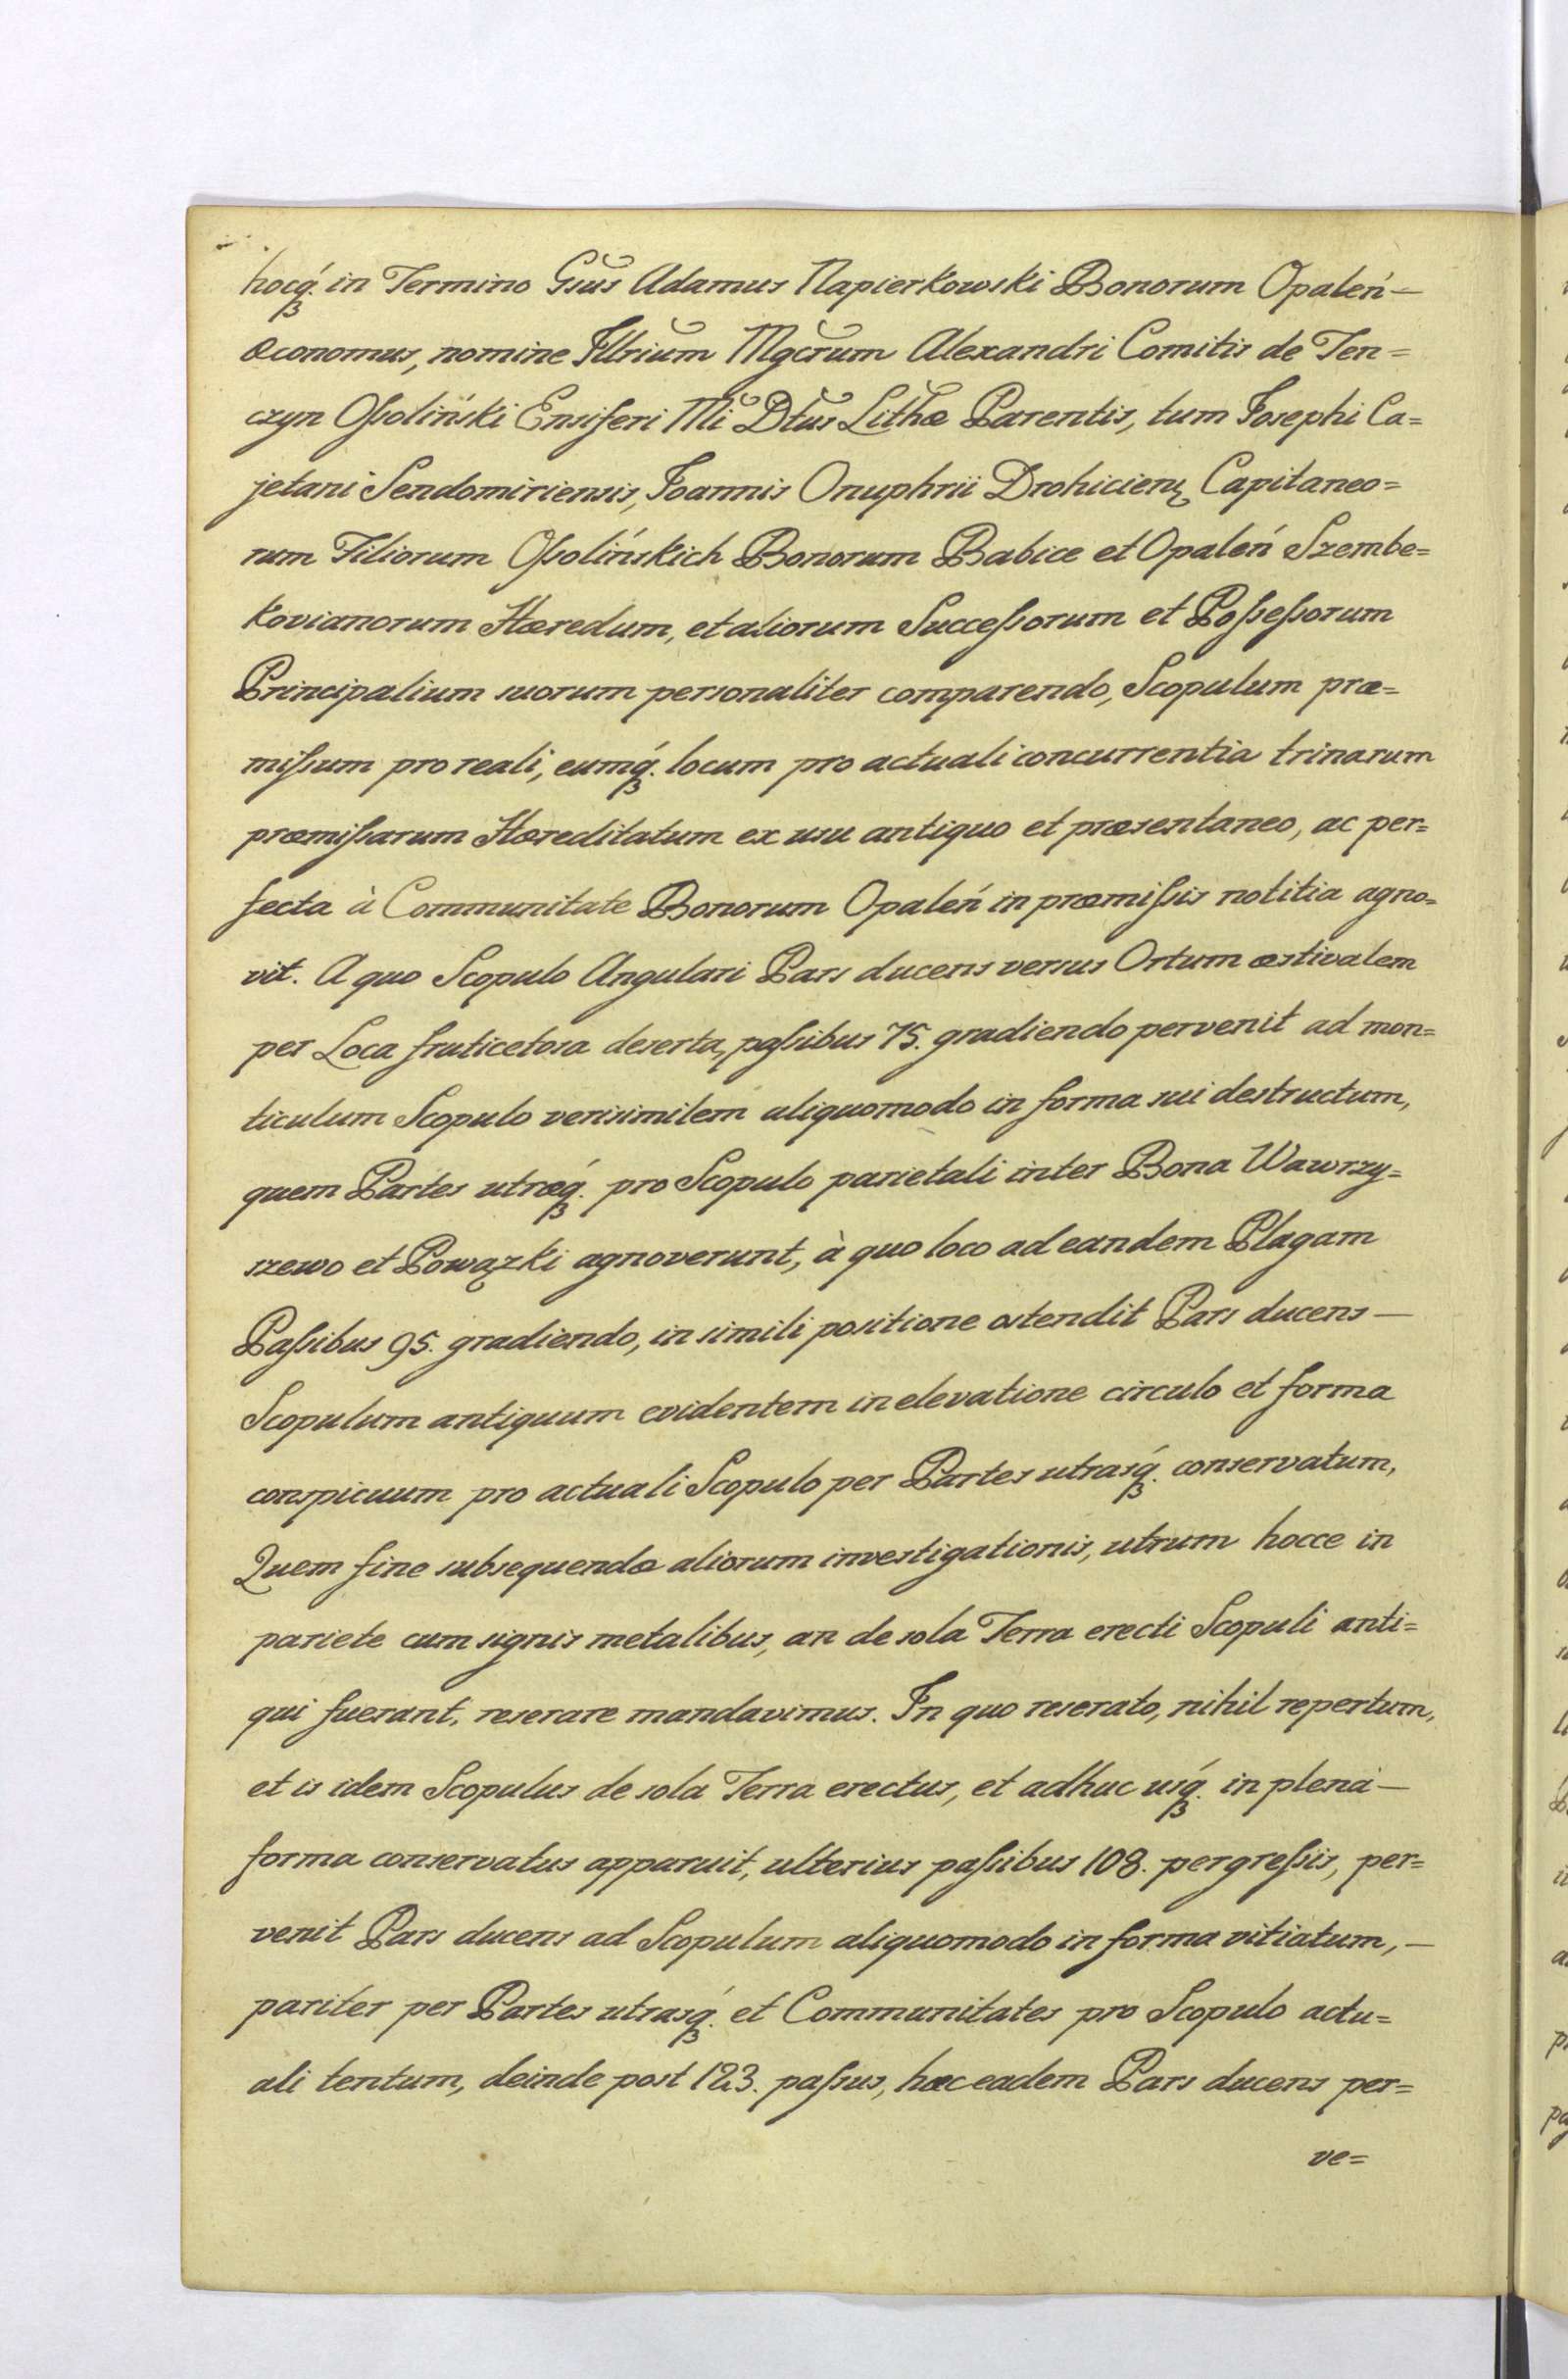 hocq́ꝫ. in Termino Gsũs Adamus Napierkowski Bonorum Opaleń —
Œconomus, nomine Illrĩum Mgcr̃um Alexandri Comitis de Ten=
czyn Oſsoliński Ensiferi Mĩ Dt̃us Lith̃æ Parentis, tum Josephi Ca=
jetani Sendomiriensis, Joannis Onuphrii Drohicień Capitaneo=
rum Filiorum Oſsolińskich Bonorum Babice et Opaleń Szembe=
kovianorum Hæredum, et aliorum Succeſsorum et Poſseſsorum
Principalium suorum personaliter comparendo, Scopulum præ=
miſsum pro reali, eumq́ꝫ. locum pro actuali concurrentia trinarum
præmiſsarum Hæreditatum ex usu antiquo et præsentaneo, ac per=
fecta à Communitate Bonorum Opaleń in præmiſsis notitia agno=
vit. A quo Scopulo Angulari Pars ducens versus Ortum æstivalem
per Loca fruticetosa deserta, paſsibus 75. gradiendo pervenit ad mon=
ticulum Scopulo verisimilem aliquomodo in forma sui destructum,
quem Partes utræq́ꝫ. pro Scopulo parietali inter Bona Wawrzy=
szewo et Powązki agnoverunt, à quo loco ad eandem Plagam
Paſsibus 95. gradiendo, in simili positione ostendit Pars ducens —
Scopulum antiquum evidentem in elevatione circulo et forma
conspicuum pro actuali Scopulo per Partes utrasq́ꝫ. conservatum,
Quem fine subsequendæ aliorum investigationis, utrum hocce in
pariete cum signis metalibus, an de sola Terra erecti Scopuli anti=
qui fuerant, reserare mandavimus. In quo reserato, nihil repertum,
et is idem Scopulus de sola Terra erectus, et adhuc usq́ꝫ. in plená —
forma conservatus apparuit, ulterius paſsibus 108. pergreſsis, per=
venit Pars ducens ad Scopulum aliquomodo in forma vitiatum, —
pariter per Partes utrasq́ꝫ. et Communitates pro Scopulo actu=
ali tentum, deinde post 123. paſsus, hæc eadem Pars ducens per=
ve=